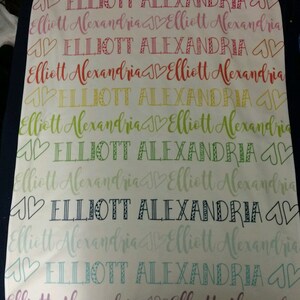 Elliott Alexandria Elliott Alexandria
ELLIOTT ALEXANDRIA
Elliott Alexandria Elliott Alexandria
ELLIOTT ALEXANDRIA
Elliott Alexandria Elliott Alexandria
ELLIOTT ALEXANDRIA
Elliott Alexandria Elliott Alexandria
ELLIOTT ALEXANDRIA
Elliott Alexandria Elliott Alexandria
ELLIOTT ALEXANDRIA
Elliott Alexandria Elliott Alexandria